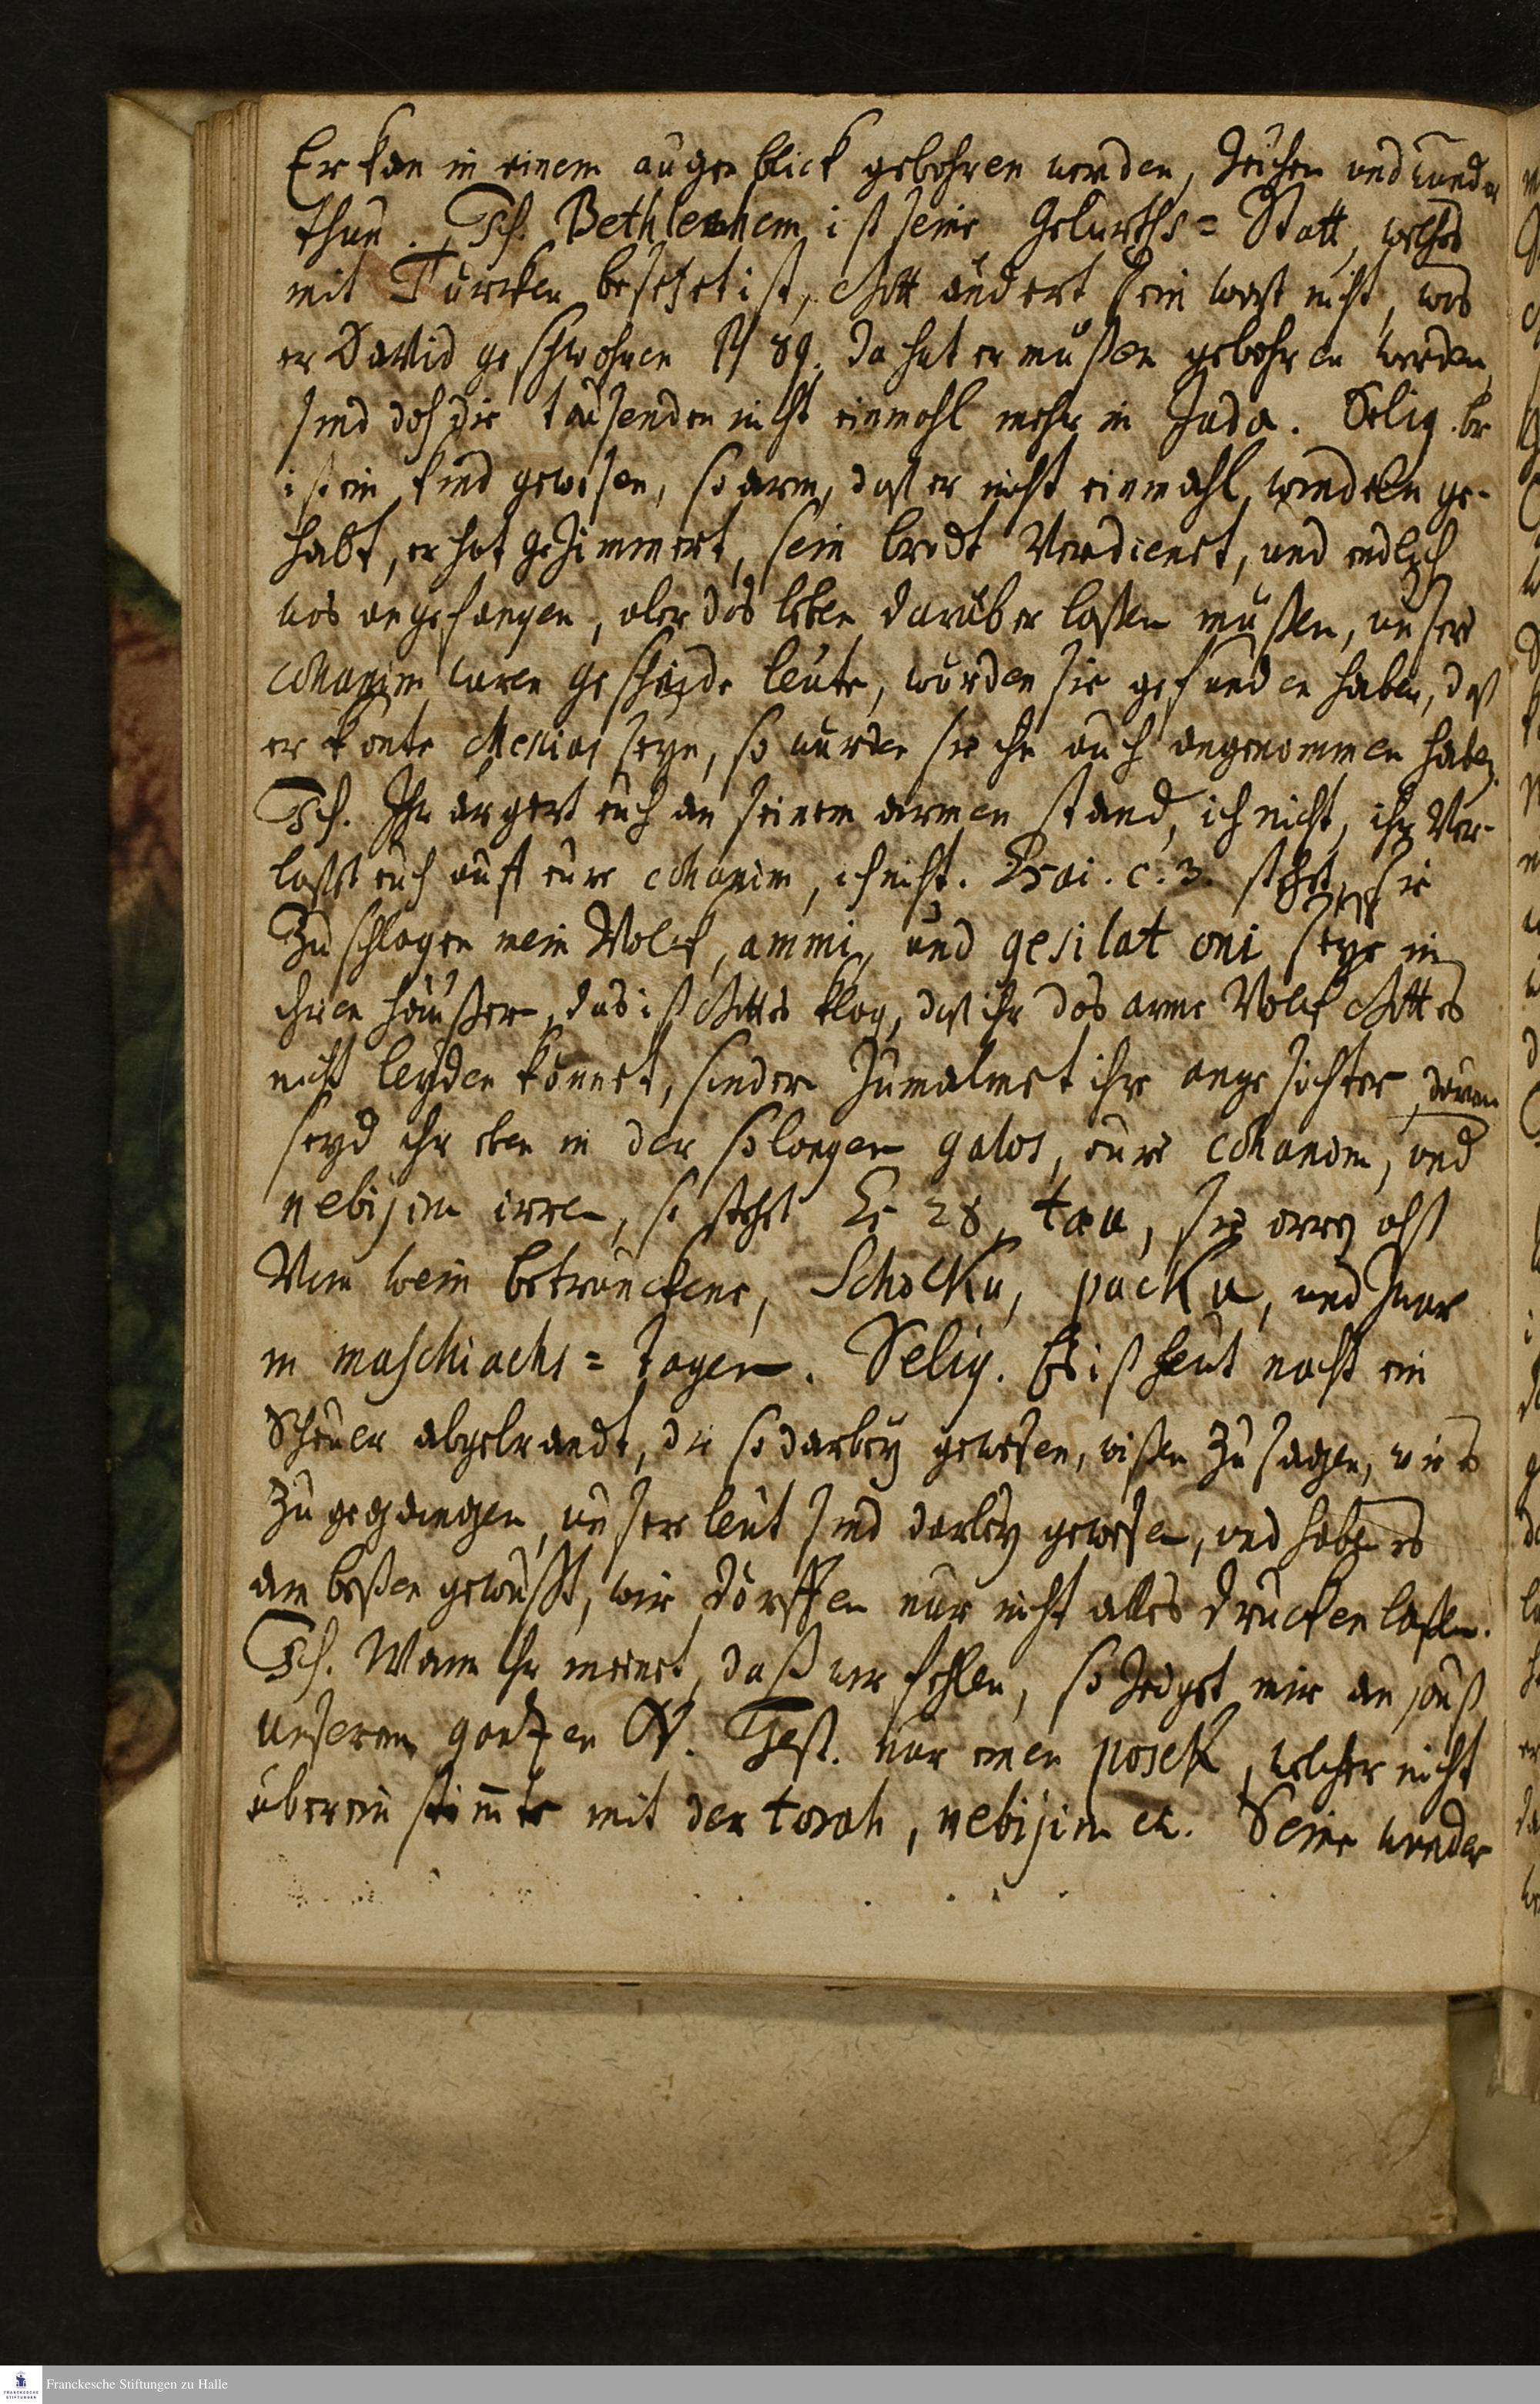 Er kan in einem augenblick gebohren werden, Zeichen und wunder
thun. Ich. Bethlehem ist seine Geburths=Statt, welches
mit Türcken besetzet ist, Gott ändert sein wort nicht, was
er David geschwohren ψ 89. da hat er müßen gebohren werden,
sind doch die tausenden nicht einmahl mehr in Juda. Selig. Er
ist ein kind gewesen, so arm, daß er nicht einmahl windeln ge-
habt, er hat gezimmert, sein brodt verdienet, und endlich
was angefangen, aber das leben darüber laßen müßen, unsere
chhanim waren gescheide leute, würden sie gefunden haben, daß
er konte Messias seyn, so würden sie ihn auch angenommen haben.
Ich. Ihr ärgert euch an seinem armen stand, ich nicht, ihr ver-
laßt euch auff eure chhanim, ich nicht. Esai. c. 3. stehet, sie
Zuschlagen mein Volck, ammi, und gesilat oni seye in
ihren häußern, das ist Gottes klag, daß ihr das arme Volck Gottes
nicht leyden könnet, sondern Zumalmet ihre angesichter, darum
seyd ihr eben in der so langen galos, eure chhanim, und
nebijim irren, so stehet Es 28, tau, sie irren alß
Vom wein betrunckene, Schocku, packu, und zwar
in maschiachs=tagen. Selig. Es ist heut nacht ein
Scheuer abgebrandt, die so darbey gewesen, wißen zu sagen, wie es
Zugegangen, unsere leut sind darbey gewesen, und haben es
am besten gewußt, wir dörffen nur nicht alles drucken laßen.
Ich. Wann Ihr meinet, daß wir fehlen, so zeiget mir an auß
unserem gantzen N. Test. nur einen posek, welcher nicht
überein stimmte mit der torah, nebijim etc. Seine wunder
Franckesche Stiftungen zu Halle